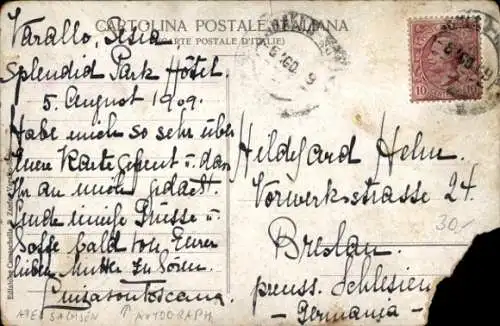 CARTOLINA POSTALE ITALIANA
(CARTE POSTALE D'ITALIE)
Varallo, Sesia
Splendid Park Hôtel.
5. August 1909.
Habe mich so sehr über
Eure Karte gefreut u. dass
Ihr an mich gedacht.
Sende innige Grüsse u.
hoffe bald von Eurer
lieben Mutter zu hören.
Luisa von Toscana
AUTOGRAPH
Hildegard Helm.
Vorwerkstrasse 24.
Breslau.
preuss. Schlesien
- Germania -
30/
10